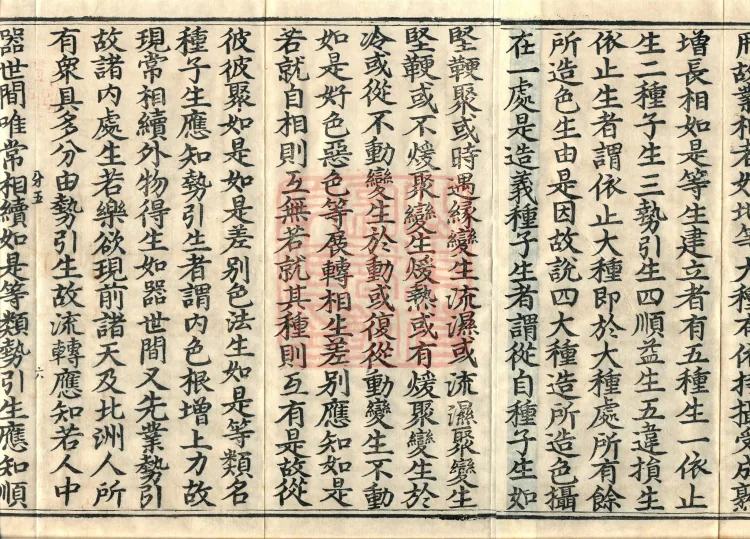 增長相如是等生建立者有五種生一依止
生二種子生三勢引生四順益生五違損生
依止生者謂依止大種即於大種處所有餘
所造色生由是因故說四大種造所造色攝
在一處是造義種子生者謂從自種子生如
堅鞕聚或時遇緣變生流濕或流濕聚變生
堅鞕或不煖聚變生煖熱或有煖聚變生於
冷或從不動變生於動或復從動變生不動
如是好色惡色等展轉相生差別應知如是
若就自相則互無若就其種則互有是故從
彼彼聚如是如是差別色法生如是等類名
種子生應知勢引生者謂內色根增上力故
現常相續外物得生如器世間又先業勢引
故諸內處生若樂欲現前諸天及北洲人所
有衆具多分由勢引生故流轉應知若人中
器世間唯常相續如是等類勢引生應知順